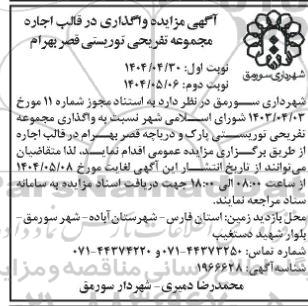 آگهی مزایده واگذاری در قالب اجاره
مجموعه تفریحی توریستی قصر بهرام
شهرداری سورمق
نوبت اول: ۱۴۰۴/۰۴/۳۰
نوبت دوم: ۱۴۰۴/۰۵/۰۶
شهرداری سورمق در نظر دارد به استناد مجوز شماره ۱۱ مورخ
۱۴۰۳/۰۴/۰۳ شورای اسلامی شهر نسبت به واگذاری مجموعه
تفریحی توریستی پارک و دریاچه قصر بهرام در قالب اجاره
از طریق برگزاری مزایده عمومی اقدام نماید. لذا متقاضیان
می‌توانند از تاریخ انتشار این آگهی لغایت مورخ ۱۴۰۴/۰۵/۰۸
از ساعت ۰۸:۰۰ الی ۱۸:۰۰ جهت دریافت اسناد مزایده به سامانه
ستاد مراجعه نمایند.
محل بازدید زمین: استان فارس - شهرستان آباده - شهر سورمق -
بلوار شهید دستغیب
شماره تماس: ۴۴۳۷۳۲۵۰-۰۷۱ و ۴۴۳۷۴۲۲۰-۰۷۱
شناسه آگهی: ۱۹۶۶۶۲۸
محمدرضا دمیری - شهردار سورمق